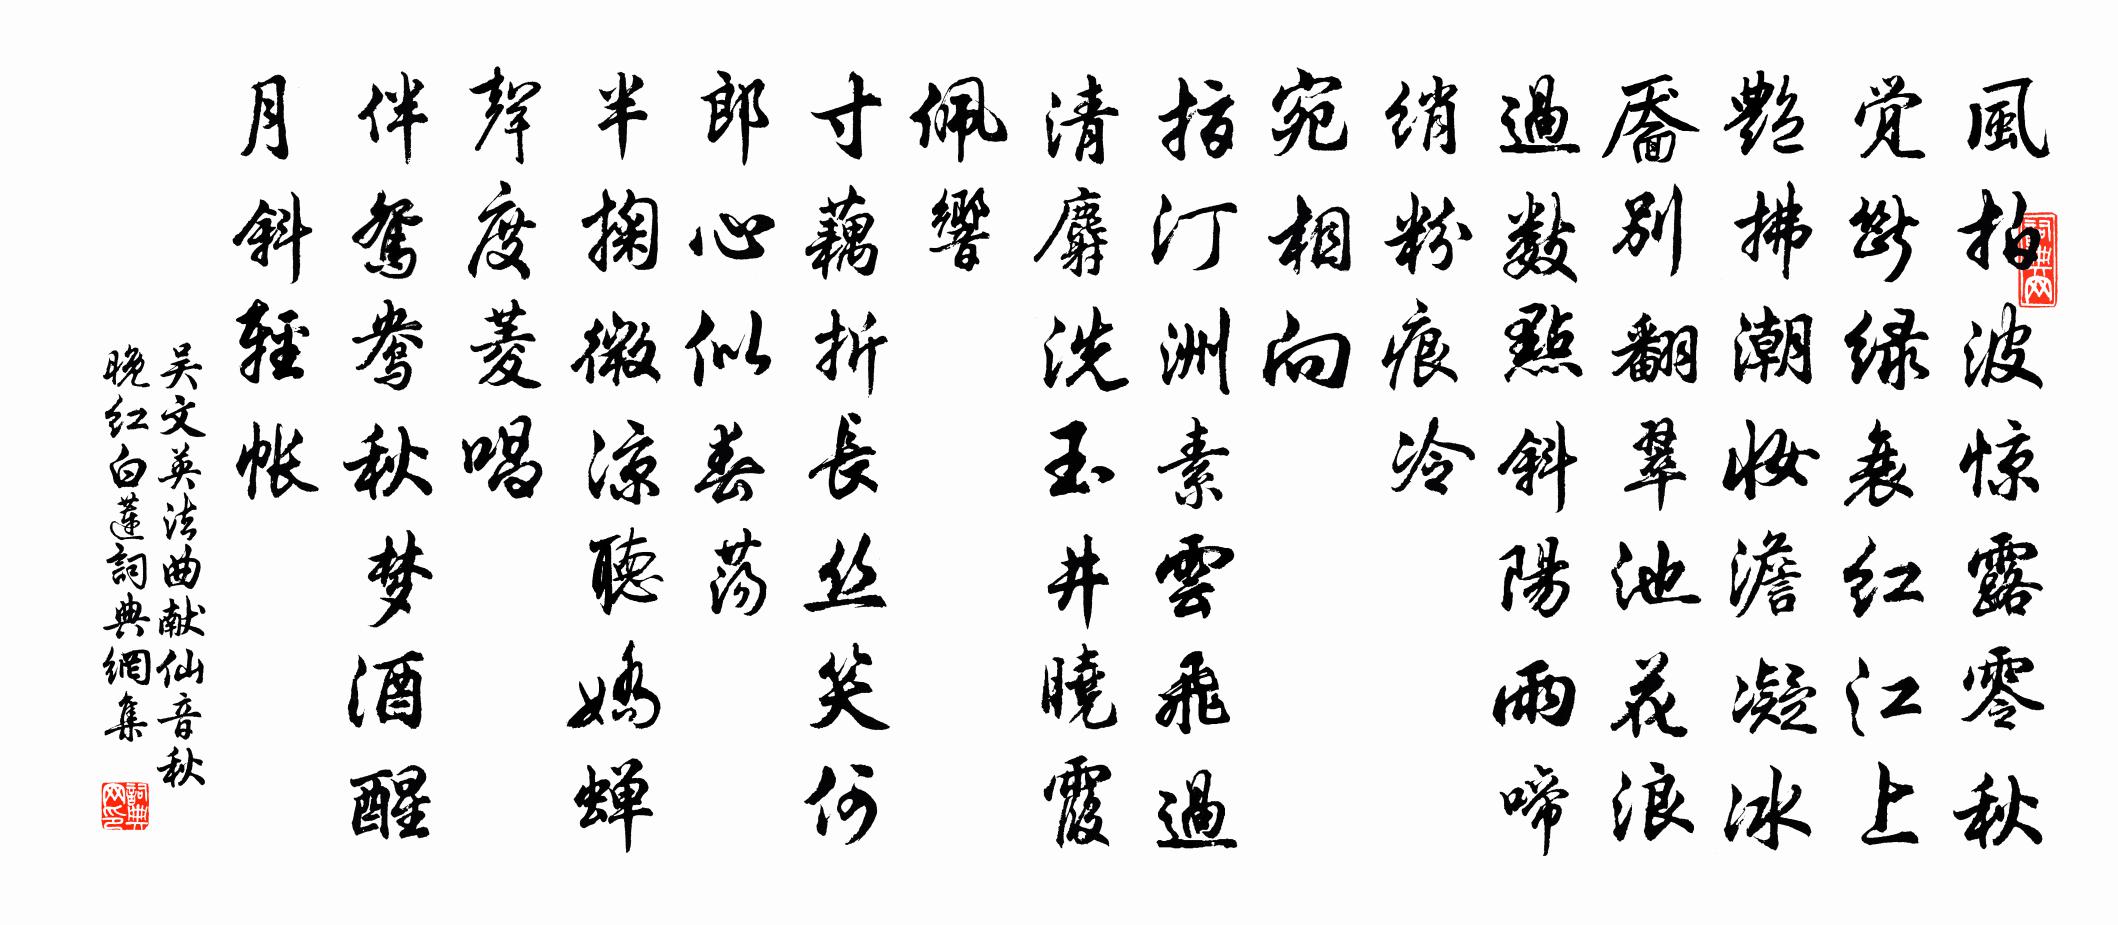 風拍波惊露零秋
覚断緑衰红江上
艶拂潮妝澹凝冰
靨别翻翠池花浪
過數點斜陽雨啼
绡粉痕冷
宛相向
指汀洲素雲飛過
清麝洗玉井曉霞
佩響
寸藕折長丝笑何
郎心似春荡
半掬微涼聽嬌蝉
聲度菱唱
伴鴛鴦秋梦酒醒
月斜輕帐
吴文英法曲献仙音秋
晚红白蓮詞典網集
詞典网印